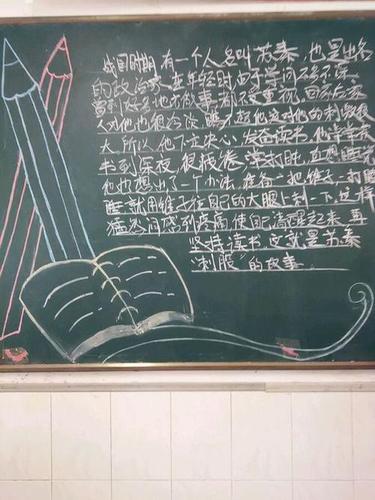 战国时期 有一个人名叫苏秦，也是出名
的政治家，在年轻时由于学问不多不深
曾到好多地方做事，都不受重视，回家后家
人对他也很冷淡，瞧不起他这对他的刺激很
大，所以，他下定决心，发奋读书，他常常读
书到深夜，很疲倦，常打盹，直想睡觉
他也想出了一个办法，准备一把锥子，一打瞌
睡就用锥子往自己的大腿上刺一下，这样
猛然间感到疼痛，使自己清醒起来，再
坚持读书，这就是苏秦
"刺股"的故事